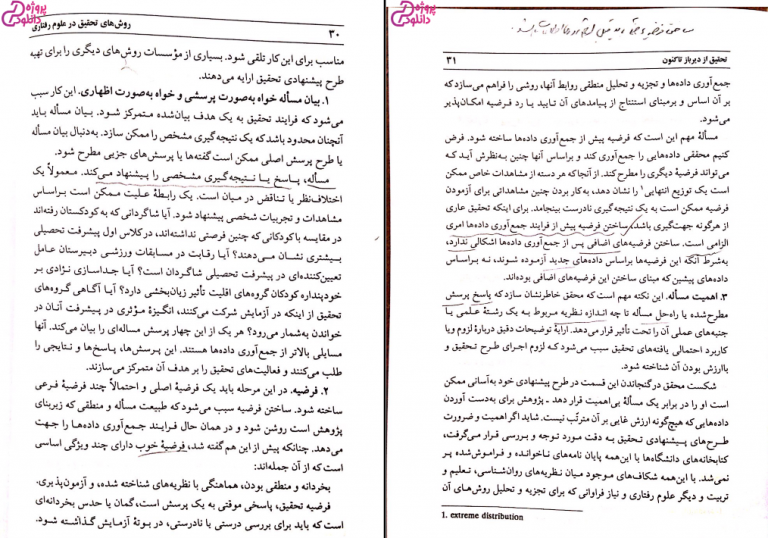 پروژه دانلود
۳۰
روش‌های تحقیق در علوم رفتاری
مناسب برای این کار تلقی شود. بسیاری از مؤسسات روش‌های دیگری را برای تهیه
طرح پیشنهادی تحقیق ارایه می‌دهند.
۱. بیان مسأله خواه به‌صورت پرسشی و خواه به‌صورت اظهاری. این کار سبب
می‌شود که فرایند تحقیق به یک هدف بیان‌شده متمرکز شود. بیان مسأله باید
آنچنان محدود باشد که یک نتیجه‌گیری مشخص را ممکن سازد. به‌دنبال بیان مسأله
یا طرح پرسش اصلی ممکن است گفته‌ها یا پرسش‌های جزیی مطرح شود.
مسأله، پاسخ یا نتیجه‌گیری مشخصی را پیشنهاد می‌کند. معمولاً یک
اختلاف‌نظر یا تناقض در میان است. یک رابطهٔ علیت ممکن است براساس
مشاهدات و تجربیات شخصی پیشنهاد شود. آیا شاگردانی که به‌کودکستان رفته‌اند
در مقایسه باکودکانی که چنین فرصتی نداشته‌اند، درکلاس اول پیشرفت تحصیلی
بیشتری نشان می‌دهند؟ آیا رقابت در مسابقات ورزشی دبیرستان عامل
تعیین‌کننده‌ای در پیشرفت تحصیلی شاگردان است؟ آیا جداسازی نژادی بر
خودپنداره کودکان گروه‌های اقلیت تأثیر زیان‌بخشی دارد؟ آیا آگاهی گروه‌های
تحقیق از اینکه در آزمایش شرکت می‌کنند، انگیزهٔ مؤثری در پیشرفت آنان در
خواندن به‌شمار می‌رود؟ هر یک از این چهار پرسش مساله‌ای را بیان می‌کند. آنها
مسایلی بالاتر از جمع‌آوری داده‌ها هستند. این پرسش‌ها، پاسخ‌ها و نتایجی را
طلب می‌کنند و فعالیت‌های تحقیق را بر هدف آن متمرکز می‌سازند.
۲. فرضیه. در این مرحله باید یک فرضیهٔ اصلی و احتمالاً چند فرضیهٔ فرعی
ساخته شود. ساختن فرضیه سبب می‌شود که طبیعت مسأله و منطقی که زیربنای
پژوهش است روشن شود و در همان حال فرایند جمع‌آوری داده‌ها را جهت
می‌دهد. چنانکه پیش از این هم‌گفته شد، فرضیهٔ خوب دارای چند ویژگی اساسی
است که از آن جمله‌اند:
بخردانه و منطقی بودن، هماهنگی با نظریه‌های شناخته شده، و آزمون‌پذیری.
فرضیه تحقیق، پاسخی موقتی به یک پرسش است، گمان یا حدس بخردانه‌ای
است که باید برای بررسی درستی یا نادرستی، در بوتهٔ آزمایش گذاشته شود.
پروژه دانلود
۳۱
تحقیق از دیرباز تاکنون
جمع‌آوری داده‌ها و تجزیه و تحلیل منطقی روابط آنها، روشی را فراهم می‌سازد که
بر آن اساس و برمبنای استنتاج از پیامدهای آن تایید یا رد فرضیه امکان‌پذیر
می‌شود.
مسألهٔ مهم این است که فرضیه پیش از جمع‌آوری داده‌ها ساخته شود. فرض
کنیم محققی داده‌هایی را جمع‌آوری کند و براساس آنها چنین به‌نظرش آید که
می‌تواند فرضیهٔ دیگری را مطرح کند. از آنجا که هر دسته از مشاهدات خاص ممکن
است یک توزیع انتهایی۱ را نشان دهد، به‌کار بردن چنین مشاهداتی برای آزمودن
فرضیه ممکن است به یک نتیجه‌گیری نادرست بینجامد. برای اینکه تحقیق عاری
از هرگونه جهت‌گیری باشد، ساختن فرضیه پیش از فرایند جمع‌آوری داده‌ها امری
الزامی است. ساختن فرضیه‌های اضافی پس از جمع‌آوری داده‌ها اشکالی ندارد،
به‌شرط آنکه این فرضیه‌ها براساس داده‌های جدید آزموده شوند، نه براساس
داده‌های پیشین که مبنای ساختن این فرضیه‌های اضافی بوده‌اند.
۳. اهمیت مسأله. این نکته مهم است که محقق خاطرنشان سازد که پاسخ پرسش
مطرح‌شده یا راه‌حل مسأله تا چه اندازه نظریه مربوط به یک رشتهٔ علمی یا
جنبه‌های عملی آن را تحت تأثیر قرار می‌دهد. ارایهٔ توضیحات دقیق دربارهٔ لزوم ویا
کاربرد احتمالی یافته‌های تحقیق سبب می‌شود که لزوم اجرای طرح و تحقیق و
باارزش بودن آن شناخته شود.
شکست محقق درگنجاندن این قسمت در طرح پیشنهادی خود به‌آسانی ممکن
است او را در برابر یک مسألهٔ بی‌اهمیت قرار دهد ـ پژوهش برای به‌دست آوردن
داده‌هایی که هیچ‌گونه ارزش غایی بر آن مترتّب نیست. شاید اگر اهمیت و ضرورت
طرح‌های پیشنهادی تحقیق به دقت مورد توجه و بررسی قرار می‌گرفت،
کتابخانه‌های دانشگاه‌ها با این‌همه پایان نامه‌های ناخوانده و فراموش‌شده پر
نمی‌شد. با این‌همه شکاف‌های موجود میان نظریه‌های روان‌شناسی، تعلیم و
تربیت و دیگر علوم رفتاری و نیاز فراوانی که برای تجزیه و تحلیل روش‌های آن
1. extreme distribution